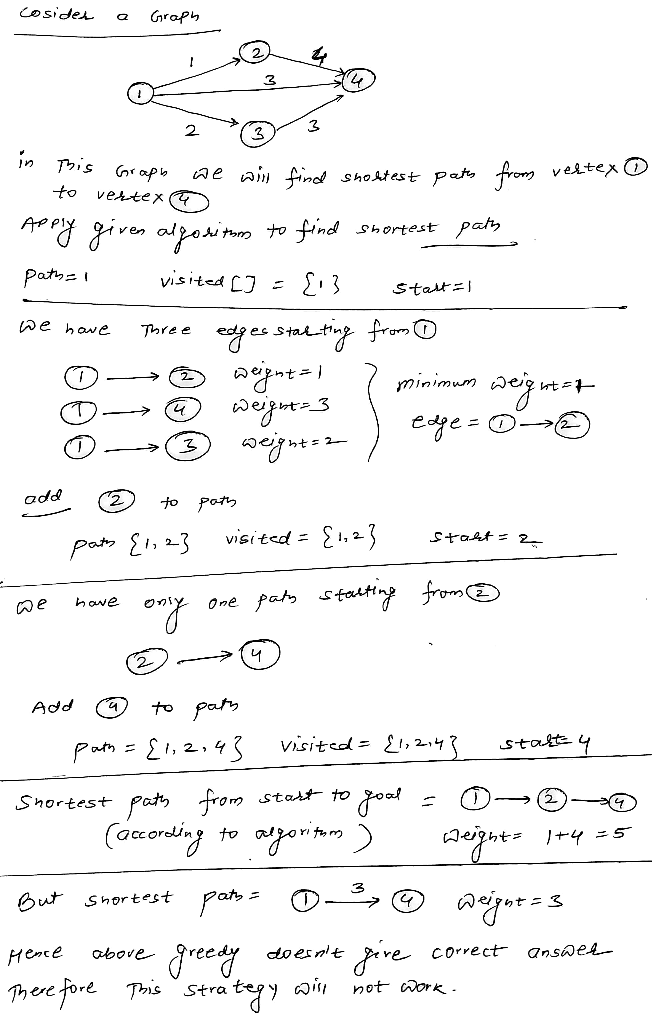 Cosider a Graph
1 2 4
1 3 4
2 3 3
in This Graph we will find shortest path from vertex 1
to vertex 4
Apply given algorithm to find shortest path
path=1 visited [] = {1} start=1
we have Three edges starting from 1
1 → 2 weight=1
1 → 4 weight=3
1 → 3 weight=2
minimum weight=1
edge = 1 → 2
add 2 to path
path {1,2} visited = {1,2} start = 2
we have only one path starting from 2
2 → 4
Add 4 to path
path = {1,2,4} visited = {1,2,4} start=4
Shortest path from start to goal = 1 → 2 → 4
(according to algorithm) weight= 1+4 =5
But shortest path = 1 3→ 4 weight=3
Hence above greedy doesn't give correct answer
Therefore This strategy will not work.